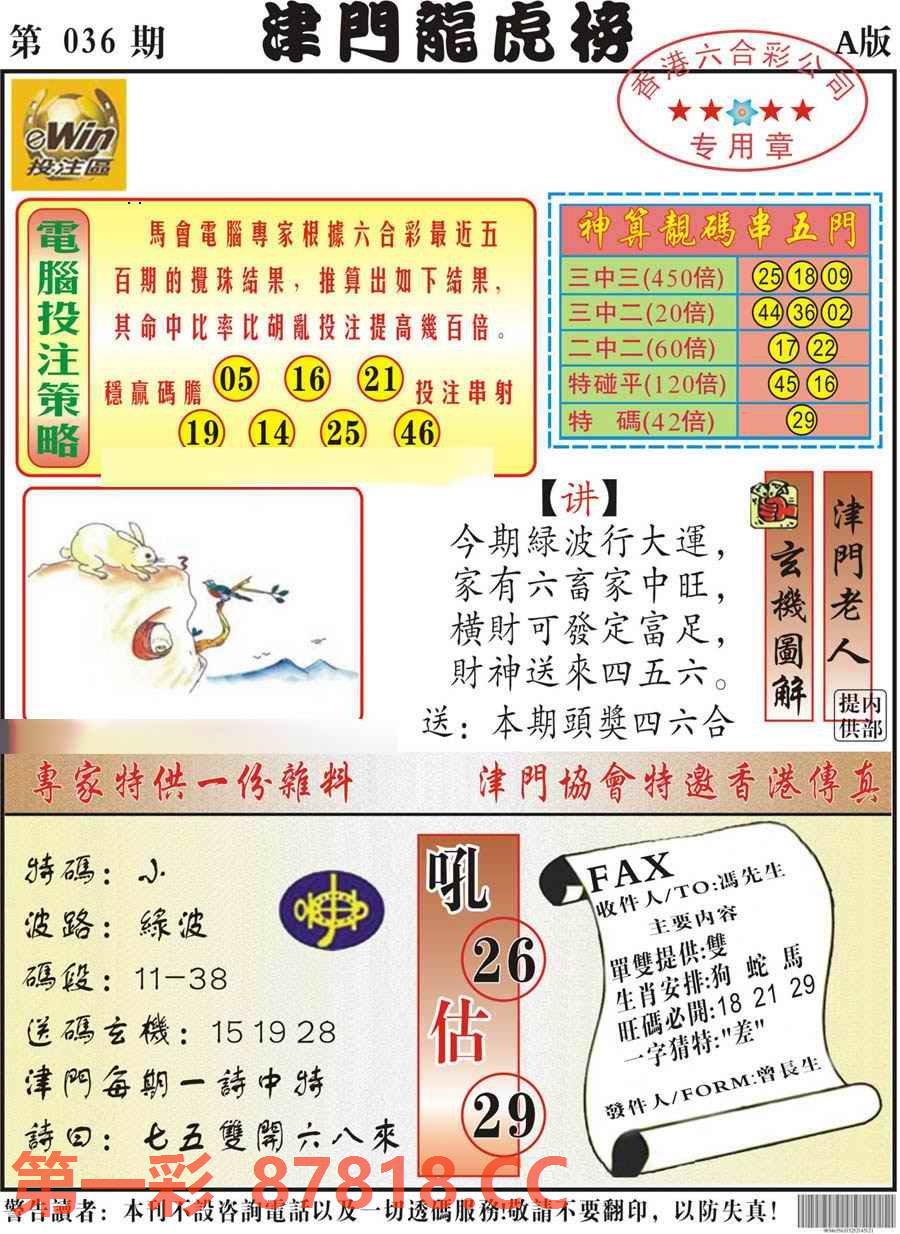 第 036 期
津門龍虎榜
A版
香港六合彩公司
专用章
eWin
投注區
電腦投注策略
馬會電腦專家根據六合彩最近五
百期的攪珠結果，推算出如下結果，
其命中比率比胡亂投注提高幾百倍。
穩贏碼膽 05 16 21 投注串射
19 14 25 46
神算靚碼串五門
三中三(450倍) 25 18 09
三中二(20倍) 44 36 02
二中二(60倍) 17 22
特碰平(120倍) 45 16
特 碼(42倍) 29
【讲】
今期綠波行大運，
家有六畜家中旺，
橫財可發定富足，
財神送來四五六。
送：本期頭獎四六合
玄機圖解
津門老人
内部提供
專家特供一份雜料
津門協會特邀香港傳真
特碼：小
波路：綠波
碼段：11-38
送碼玄機：15 19 28
津門每期一詩中特
詩曰：七五雙開六八來
吼
26
估
29
FAX
收件人/TO:馮先生
主要内容
單雙提供:雙
生肖安排:狗 蛇 馬
旺碼必開:18 21 29
一字猜特:"差"
發件人/FORM:曾長生
第一彩 87818.CC
警告讀者：本刊不設咨詢電話以及一切透碼服務!敬請不要翻印，以防失真！